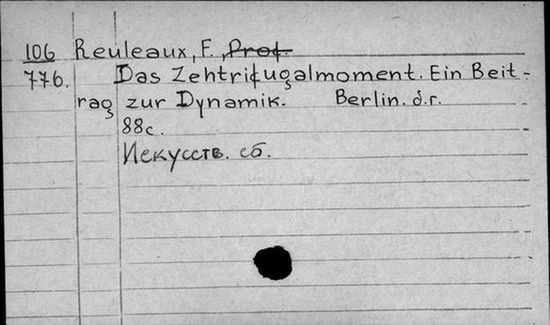 106 Reuleaux, F., Prof.
776. Das Zehtrifugalmoment. Ein Beit-
rag zur Dynamik. Berlin. d.r.
88c.
Искусств. сб.